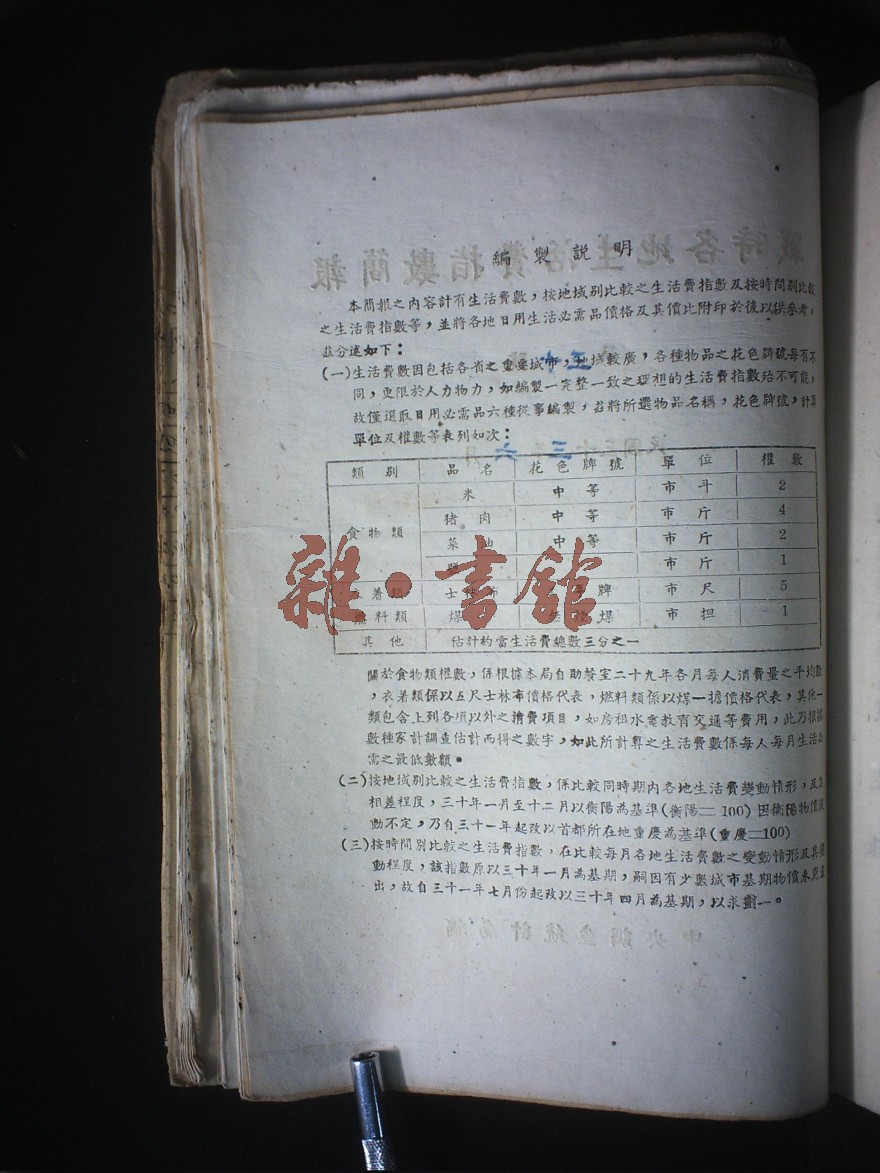 編製說明
本簡報之內容計有生活費數，按地域別比較之生活費指數及按時間別比較
之生活費指數等，並將各地日用生活必需品價格及其價比附印於後以供參考，
茲分述如下：
(一)生活費數因包括各省之重要城市，地域較廣，各種物品之花色牌號每有不
同，更限於人力物力，如編製一完整一致之理想的生活費指數殆不可能，
故僅選取日用必需品六種從事編製，茲將所選物品名稱，花色牌號，計算
單位及權數等表列如次：
類別 品名 花色牌號 單位 權數
米 中等 市斗 2
猪肉 中等 市斤 4
食物類 菜油 中等 市斤 2
市斤 1
着類 士 牌 市尺 5
燃料類 煤 煤 市担 1
其他 估計約當生活費總數三分之一
關於食物類權數，係根據本局自助餐室二十九年各月每人消費量之平均數
，衣着類係以五尺士林布價格代表，燃料類係以煤一擔價格代表，其他一
類包含上列各項以外之消費項目，如房租水電教育交通等費用，此乃根據
數種家計調查估計而得之數字，如此所計算之生活費數係每人每月生活必
需之最低數額。
(二)按地域別比較之生活費指數，係比較同時期內各地生活費變動情形，及其
相差程度，三十年一月至十二月以衡陽為基準(衡陽＝100)因衡陽物價波
動不定，乃自三十一年起改以首都所在地重慶為基準(重慶＝100)
(三)按時間別比較之生活費指數，在比較每月各地生活費數之變動情形及其變
動程度，該指數原以三十年一月為基期，嗣因有少數城市基期物價未克查
出，故自三十一年七月份起改以三十年四月為基期，以求劃一。
雜·書館